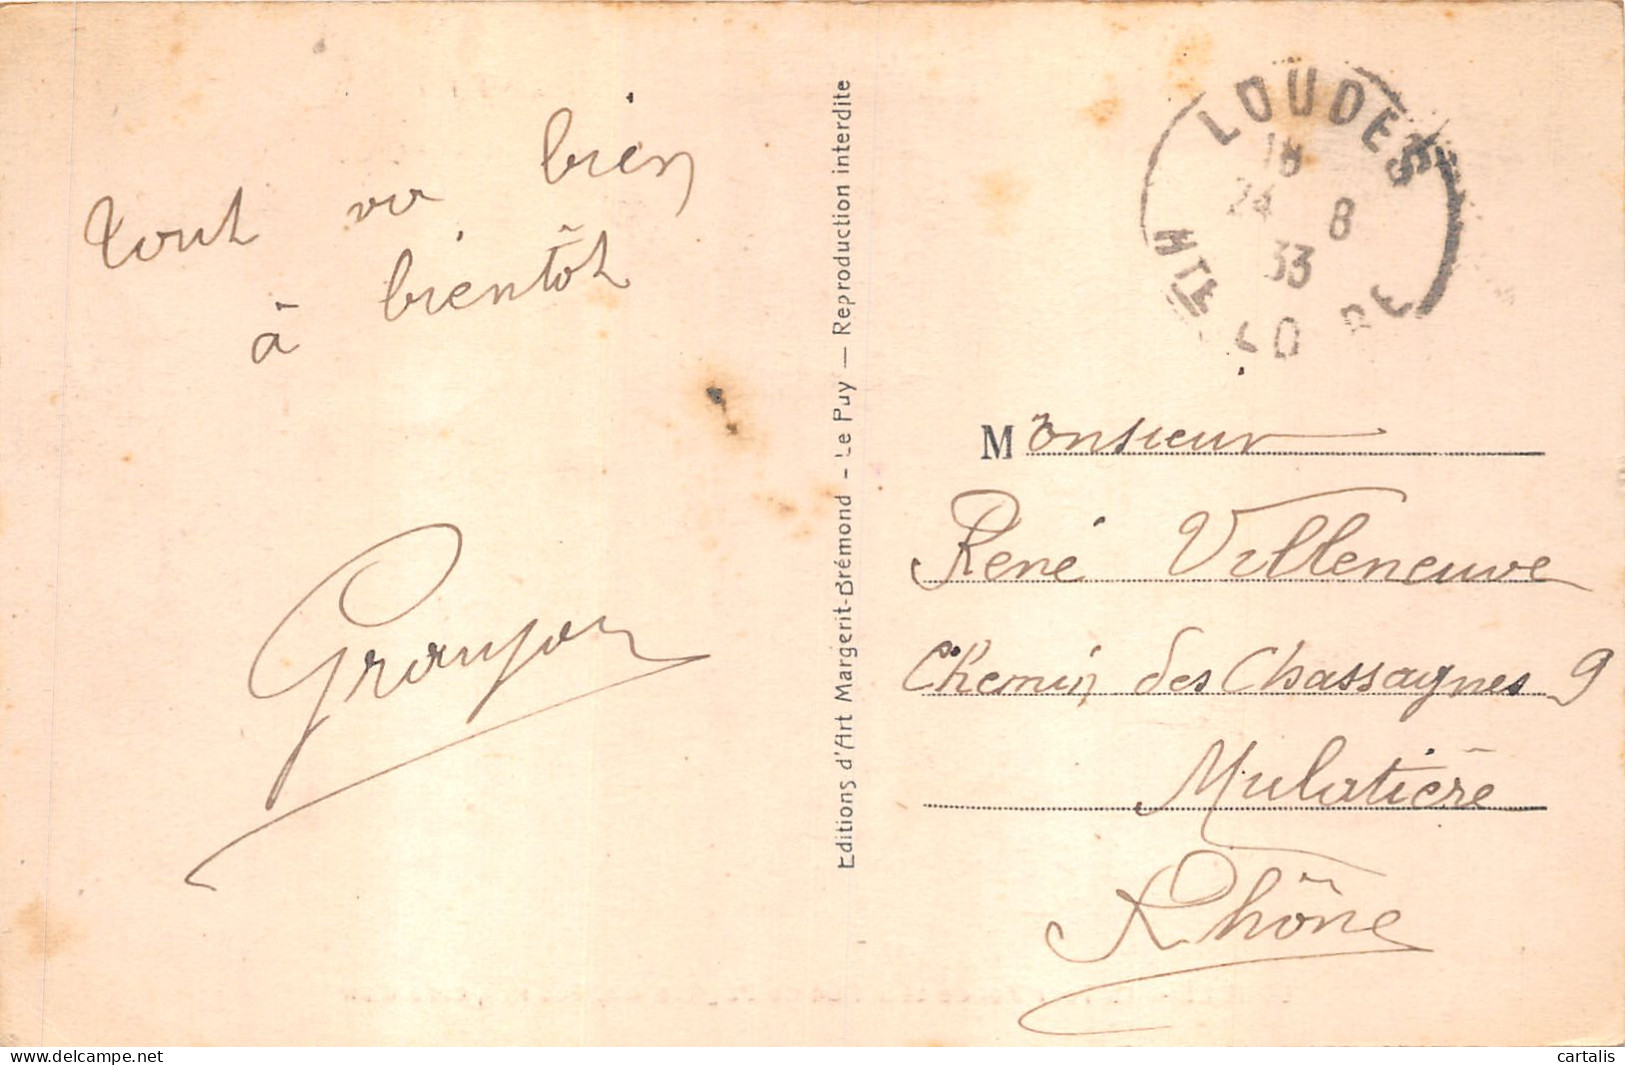 tout va bien
à bientôt
Granjon
Editions d'Art Margerit-Brémond - Le Puy — Reproduction interdite
LOUDES
18
24 8
33
HTE LOIRE
Monsieur
René Villeneuve
Chemin des Chassagnes 9
Mulatière
Rhône
delcampe.net
cartalis